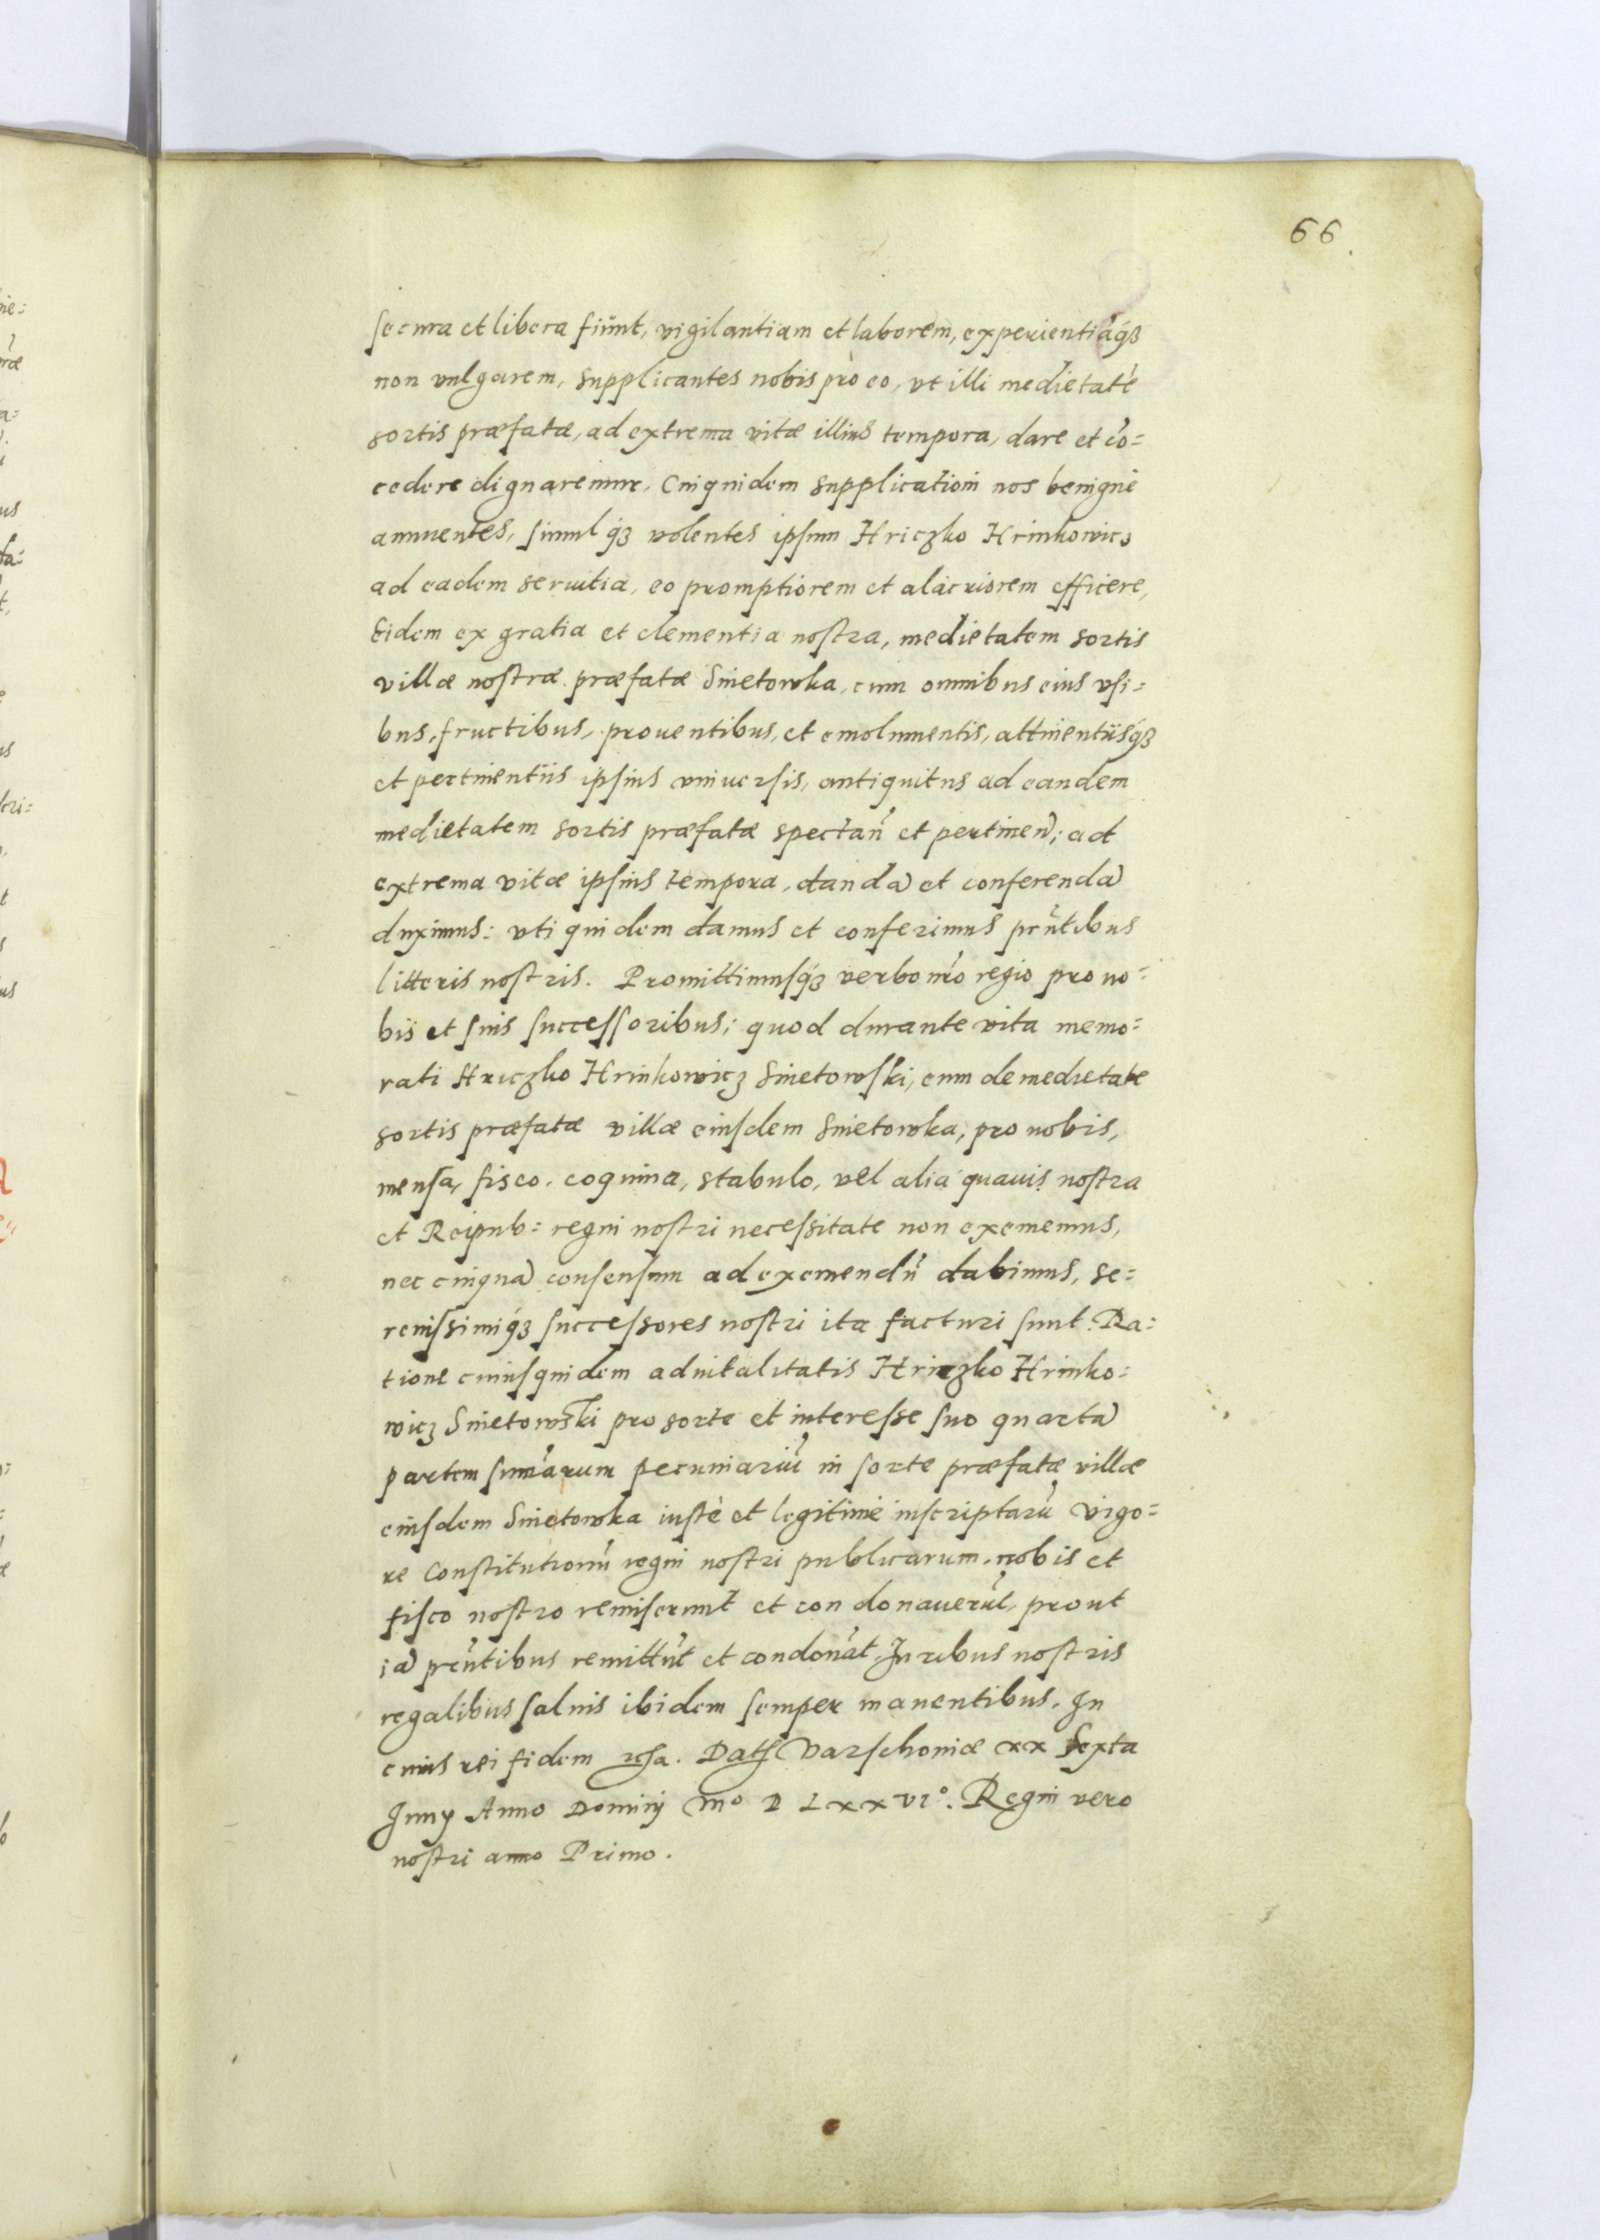 66
secura et libera fiunt, vigilantiam et laborem, experientiãq́ꝫ
non vulgarem, supplicantes nobis prò eo, vt illi medietatẽ
sortis præfatæ, ad extrema vitæ illius tempora, dare et cõ=
cedere dignaremur. Cuiquidem supplicationi nos benignè
annuentes, simul q́ꝫ volentes ipsum Hriczko Hrinkowicz
ad eadem seruitia, eo promptiorem et alacriorem efficere,
Eidem ex gratia et clementia nostra, medietatem sortis
villæ nostræ præfatæ Sinetowka, cum omnibus eius vsi=
bus, fructibus, prouentibus, et emolumentis, attinentiisq́ꝫ
et pertinentiis ipsius vniuersis, antiquitus ad eandem
medietatem sortis præfatæ spectañ et pertineñ; ad
extrema vitæ ipsius tempora, dandã et conferendã
duximus: vti quidem damus et conferimus prñtibus
litteris nostris. Promittimusq́ꝫ verbo nrõ regio pro no=
bis et suis successoribus; quod durante vita memo=
rati Hriczko Hrinkowicz Sinetowski, eum de medietate
sortis præfatæ villæ eiusdem Sinetowka, pro nobis,
mensa, fisco, coquina, stabulo, vel alia quauis nostra
et Reipub: regni nostri necessitate non exememus,
nec cuiquã consensum ad exemendũ dabimus, se=
renissimiq́ꝫ successores nostri ita facturi sunt. Ra=
tione cuiusquidem aduitalitatis Hriczko Hrinko=
wicz Sinetowski pro sorte et interesse suo quartã
partem sum̃arum pecuniariũ in sorte præfatæ villæ
eiusdem Sinetowka iustè et legitimè inscriptarũ vigo=
re Constitutionũ regni nostri publicarum, nobis et
fisco nostro remiserunt et condonauerũt, prout
iã prñtibus remittũt et condonãt. Iuribus nostris
regalibus saluis ibidem semper manentibus. In
cuius rei fidem rẽsa. Datꝭ Varschouiæ xx sexta
Iuny Anno Dominj Mº D Lxxviº. Regni vero
nostri anno Primo.